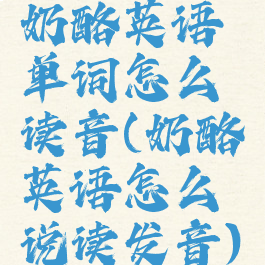 奶酪英语
单词怎么
读音(奶酪
英语怎么
说读发音)